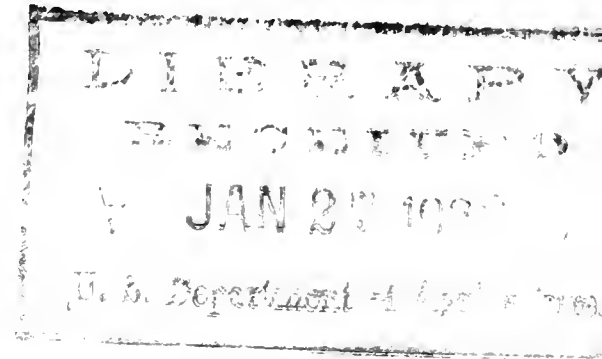 LIBRARY
RECEIVED
JAN
U. S. Department of Agriculture